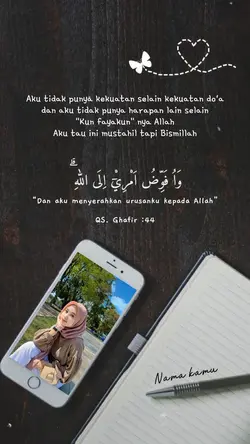 Aku tidak punya kekuatan selain kekuatan do'a
dan aku tidak punya harapan lain selain
"Kun Fayakun" nya Allah
Aku tau ini mustahil tapi Bismillah
وَاُفَوِّضُ اَمْرِيْٓ اِلَى اللّٰهِ ۗ
"Dan aku menyerahkan urusanku kepada Allah"
QS. Ghafir :44
Nama kamu